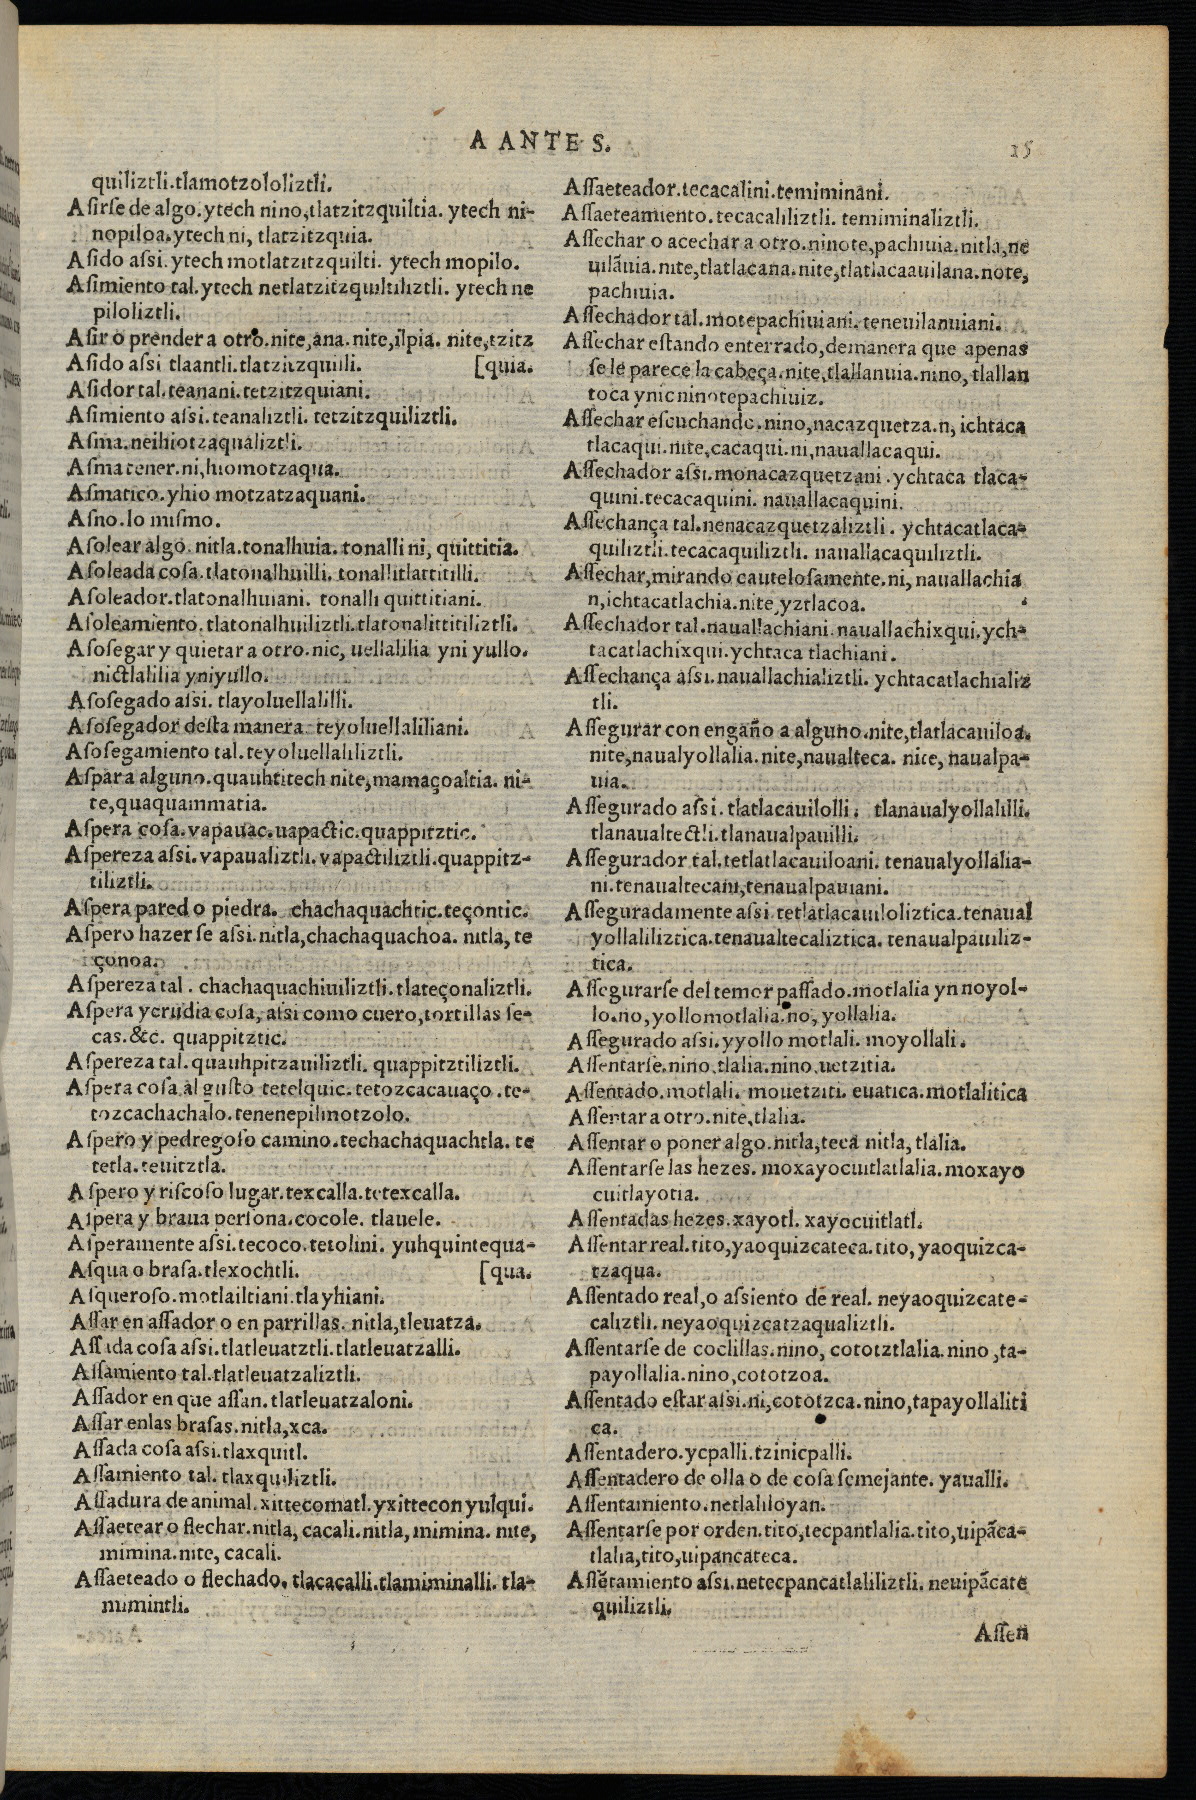 A ANTE S.
15
quiliztli.tlamotzololiztli.
Asirse de algo.ytech nino,tlatzitzquiltia. ytech ni-
nopiloa.ytech ni, tlatzitzquia.
Asido assi.ytech motlatzitzquilti. ytech mopilo.
Asimiento tal.ytech netlatzitzquiltiliztli. ytech ne
piloliztli.
Asir o prender a otro.nite,ana.nite,ilpia. nite,tzitz
Asido assi tlaantli.tlatzitzquilli. [quia.
Asidor tal.teanani.tetzitzquiani.
Asimiento assi.teanaliztli. tetzitzquiliztli.
Asma.neihiotzaqualiztli.
Asma tener.ni,hiomotzaqua.
Asmatico.yhio motzatzaquani.
Asno.lo mismo.
Asolear algo. nitla.tonalhuia.tonalli ni, quittitia.
Asoleada cosa.tlatonalhuilli. tonallitlattitilli.
Asoleador.tlatonalhuiani. tonalli quittitiani.
Asoleamiento.tlatonalhuiliztli.tlatonalittitiliztli.
Asosegar y quietar a otro.nic, uellalilia yni yullo.
nictlalilia yniyullo.
Asosegado assi. tlayoluellalilli.
Asosegador desta manera teyoluellaliliani.
Asosegamiento tal.teyoluellaliliztli.
Aspar a alguno.quauhtitech nite,mamaçoaltia. ni-
te,quaquammatia.
Aspera cosa.vapauac.uapactic.quappitztic.
Aspereza assi.vapaualiztli.vapactiliztli.quappitz-
tiliztli.
Aspera pared o piedra. chachaquachtic.teçontic.
Aspero hazerse assi.nitla,chachaquachoa. nitla, te
çonoa.
Aspereza tal. chachaquachiuiliztli.tlateçonaliztli.
Aspera ycrudia cosa, assi como cuero,tortillas se-
cas.&c. quappitztic.
Aspereza tal.quauhpitzauiliztli. quappitztiliztli.
Aspera cosa al gusto tetelquic.tetozcacauaço.te-
tozcachachalo.tenenepilmotzolo.
Aspero y pedregoso camino.techachaquachtla. te
tetla.teuitztla.
Aspero y riscoso lugar.texcalla.tetexcalla.
Aspera y braua persona.cocole. tlauele.
Asperamente assi.tecoco.tetolini. yuhquintequa-
Asqua o brasa.tlexochtli. [qua.
Asqueroso.motlailtiani.tlayhiani.
Assar en assador o en parrillas. nitla,tleuatza.
Assada cosa assi.tlatleuatztli.tlatleuatzalli.
Assamiento tal.tlatleuatzaliztli.
Assador en que assan.tlatleuatzaloni.
Assar enlas brasas.nitla,xca.
Assada cosa assi.tlaxquitl.
Assamiento tal.tlaxquiliztli.
Assadura de animal.xittecomatl.yxittecon yulqui.
Assaetear o flechar.nitla, cacali.nitla, mimina. nite,
mimina.nite, cacali.
Assaeteado o flechado.tlacacalli.tlamiminalli.tla-
mimintli.
Assaeteador.tecacalini.temiminani.
Assaeteamiento.tecacaliliztli. temiminaliztli.
Assechar o acechar a otro.ninote,pachiuia.nitla,ne
uilāuia.nite,tlatlacana.nite,tlatlacaauilana.note,
pachiuia.
Assechador tal.motepachiuiani.teneuilanuiani.
Assechar estando enterrado,demanera que apenas
se le parece la cabeça.nite,tlallanuia.nino,tlallan
toca ynic ninotepachiuiz.
Assechar escuchando.nino,nacazquetza.n, ichtaca
tlacaqui.nite,cacaqui.ni,nauallacaqui.
Assechador assi.monacazquetzani.ychtaca tlaca-
quini.tecacaquini. nauallacaquini.
Assechança tal.nenacazquetzaliztli. ychtacatlaca-
quiliztli.tecacaquiliztli. nauallacaquiliztli.
Assechar,mirando cautelosamente.ni, nauallachia
n,ichtacatlachia.nite,yztlacoa.
Assechador tal.nauallachiani.nauallachixqui.ych-
tacatlachixqui.ychtaca tlachiani.
Assechança assi.nauallachializtli. ychtacatlachializ
tli.
Assegurar con engaño a alguno.nite,tlatlacauiloa.
nite,naualyollalia.nite,naualteca. nite, naualpa-
uia.
Assegurado assi.tlatlacauilolli. tlanaualyollalilli.
tlanaualtectli.tlanaualpauilli.
Assegurador tal.tetlatlacauiloani. tenaualyollalia-
ni.tenaualtecani,tenaualpauiani.
Asseguradamente assi.tetlatlacauiloliztica.tenaual
yollaliliztica.tenaualtecaliztica. tenaualpauiliz-
tica.
Assegurarse del temor passado.motlalia yn noyol-
lo.no,yollomotlalia.no, yollalia.
Assegurado assi.yyollo motlali. moyollali.
Assentarse.nino,tlalia.nino,uetzitia.
Assentado.motlali. mouetziti. euatica.motlalitica
Assentar a otro.nite,tlalia.
Assentar o poner algo.nitla,teca nitla, tlalia.
Assentarse las hezes. moxayocuitlatlalia.moxayo
cuitlayotia.
Assentadas hezes.xayotl. xayocuitlatl.
Assentar real.tito,yaoquizcateca.tito,yaoquizca-
tzaqua.
Assentado real,o assiento de real. neyaoquizcate-
caliztli.neyaoquizcatzaqualiztli.
Assentarse de coclillas.nino, cototztlalia.nino,ta-
payollalia.nino,cototzoa.
Assentado estar assi.ni,cototzca.nino,tapayollaliti
ca.
Assentadero.ycpalli.tzinicpalli.
Assentadero de olla o de cosa semejante. yaualli.
Assentamiento.netlaliloyan.
Assentarse por orden.tito,tecpantlalia.tito,uipāca-
tlalia,tito,uipancateca.
Assētamiento assi.netecpancatlaliliztli. neuipācate
quiliztli.
Assen